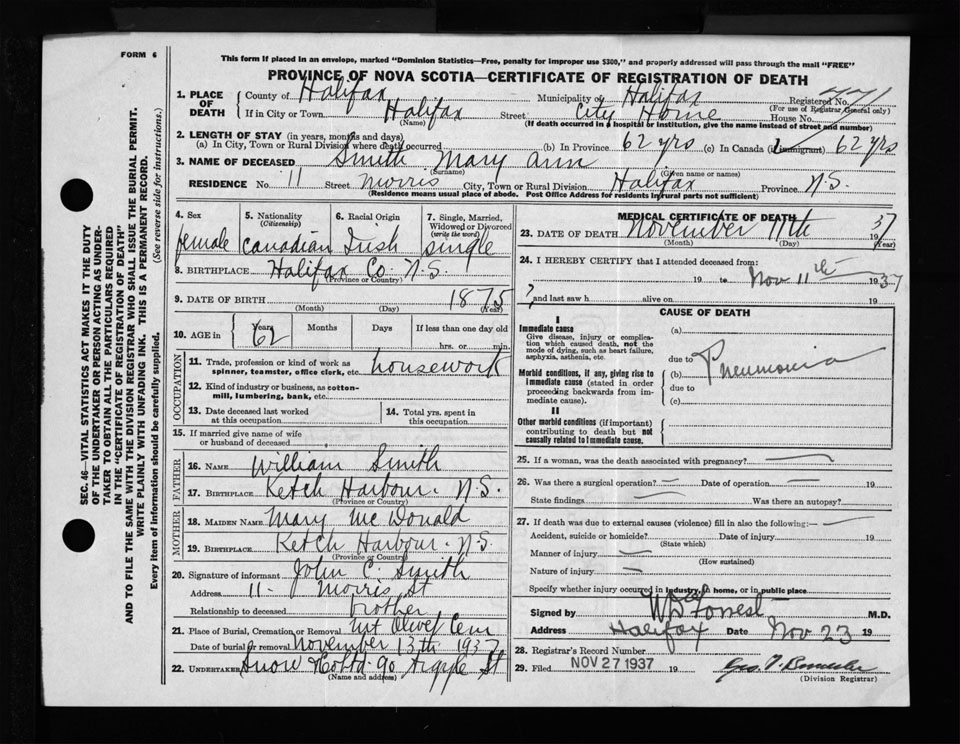 FORM 6
This form if placed in an envelope, marked "Dominion Statistics—Free, penalty for improper use $300," and properly addressed will pass through the mail "FREE"
PROVINCE OF NOVA SCOTIA—CERTIFICATE OF REGISTRATION OF DEATH
1. PLACE OF DEATH { County of Halifax Municipality of Halifax Registered No. 471
(For use of Registrar General only)
If in City or Town Halifax Street City Home House No.
(Name) (If death occurred in a hospital or institution, give the name instead of street and number)
2. LENGTH OF STAY (in years, months and days)
(a) In City, Town or Rural Division where death occurred (b) In Province 62 yrs (c) In Canada (if immigrant) 62 yrs
3. NAME OF DECEASED Smith Mary Ann
(Surname) (Given name or names)
RESIDENCE No. 11 Street Morris City, Town or Rural Division Halifax Province N.S.
(Residence means usual place of abode. Post Office Address for Residents in rural parts not sufficient)
4. Sex female
5. Nationality (Citizenship) Canadian
6. Racial Origin Irish
7. Single, Married, Widowed or Divorced (write the word) single
8. BIRTHPLACE Halifax Co. N.S.
(Province or Country)
9. DATE OF BIRTH 1875
(Month) (Day) (Year)
10. AGE in { Years 62 Months Days If less than one day old
hrs. or min.
OCCUPATION
11. Trade, profession or kind of work as spinner, teamster, office clerk, etc. housework
12. Kind of industry or business, as cotton-mill, lumbering, bank, etc.
13. Date deceased last worked at this occupation
14. Total yrs. spent in this occupation
15. If married give name of wife or husband of deceased
FATHER
16. NAME William Smith
17. BIRTHPLACE Ketch Harbour. N.S.
(Province or Country)
MOTHER
18. MAIDEN NAME Mary McDonald
19. BIRTHPLACE Ketch Harbour. N.S.
(Province or Country)
20. Signature of informant John C. Smith
Address 11- Morris St
Relationship to deceased brother
21. Place of Burial, Cremation or Removal Mt Olivet Cem
Date of burial or removal November 13th 1937
22. UNDERTAKER Snow & Co Ltd. 90 Argyle St
(Name and address)
MEDICAL CERTIFICATE OF DEATH
23. DATE OF DEATH November 11th 1937
(Month) (Day) (Year)
24. I HEREBY CERTIFY that I attended deceased from:
19 to Nov 11th 1937
? and last saw h alive on 19
CAUSE OF DEATH
I
Immediate cause
Give disease, injury or complication which caused death, not the mode of dying, such as heart failure, asphyxia, asthenia, etc.
Morbid conditions, if any, giving rise to immediate cause (stated in order proceeding backwards from immediate cause).
II
Other morbid conditions (if important) contributing to death but not causally related to immediate cause.
(a)
due to
(b) Pneumonia
due to
(c)
25. If a woman, was the death associated with pregnancy?
26. Was there a surgical operation? Date of operation 19
State findings Was there an autopsy?
27. If death was due to external causes (violence) fill in also the following:—
Accident, suicide or homicide? Date of injury 19
(State which)
Manner of injury
(How sustained)
Nature of injury
Specify whether injury occurred in industry, in home, or in public place
Signed by W D Forrest M.D.
Address Halifax Date Nov 23 19
28. Registrar's Record Number
29. Filed NOV 27 1937 19
(Division Registrar)
SEC. 46—VITAL STATISTICS ACT MAKES IT THE DUTY
OF THE UNDERTAKER OR PERSON ACTING AS UNDER-
TAKER TO OBTAIN ALL THE PARTICULARS REQUIRED
IN THE "CERTIFICATE OF REGISTRATION OF DEATH"
AND TO FILE THE SAME WITH THE DIVISION REGISTRAR WHO SHALL ISSUE THE BURIAL PERMIT.
WRITE PLAINLY WITH UNFADING INK. THIS IS A PERMANENT RECORD.
Every item of information should be carefully supplied. (See reverse side for instructions.)